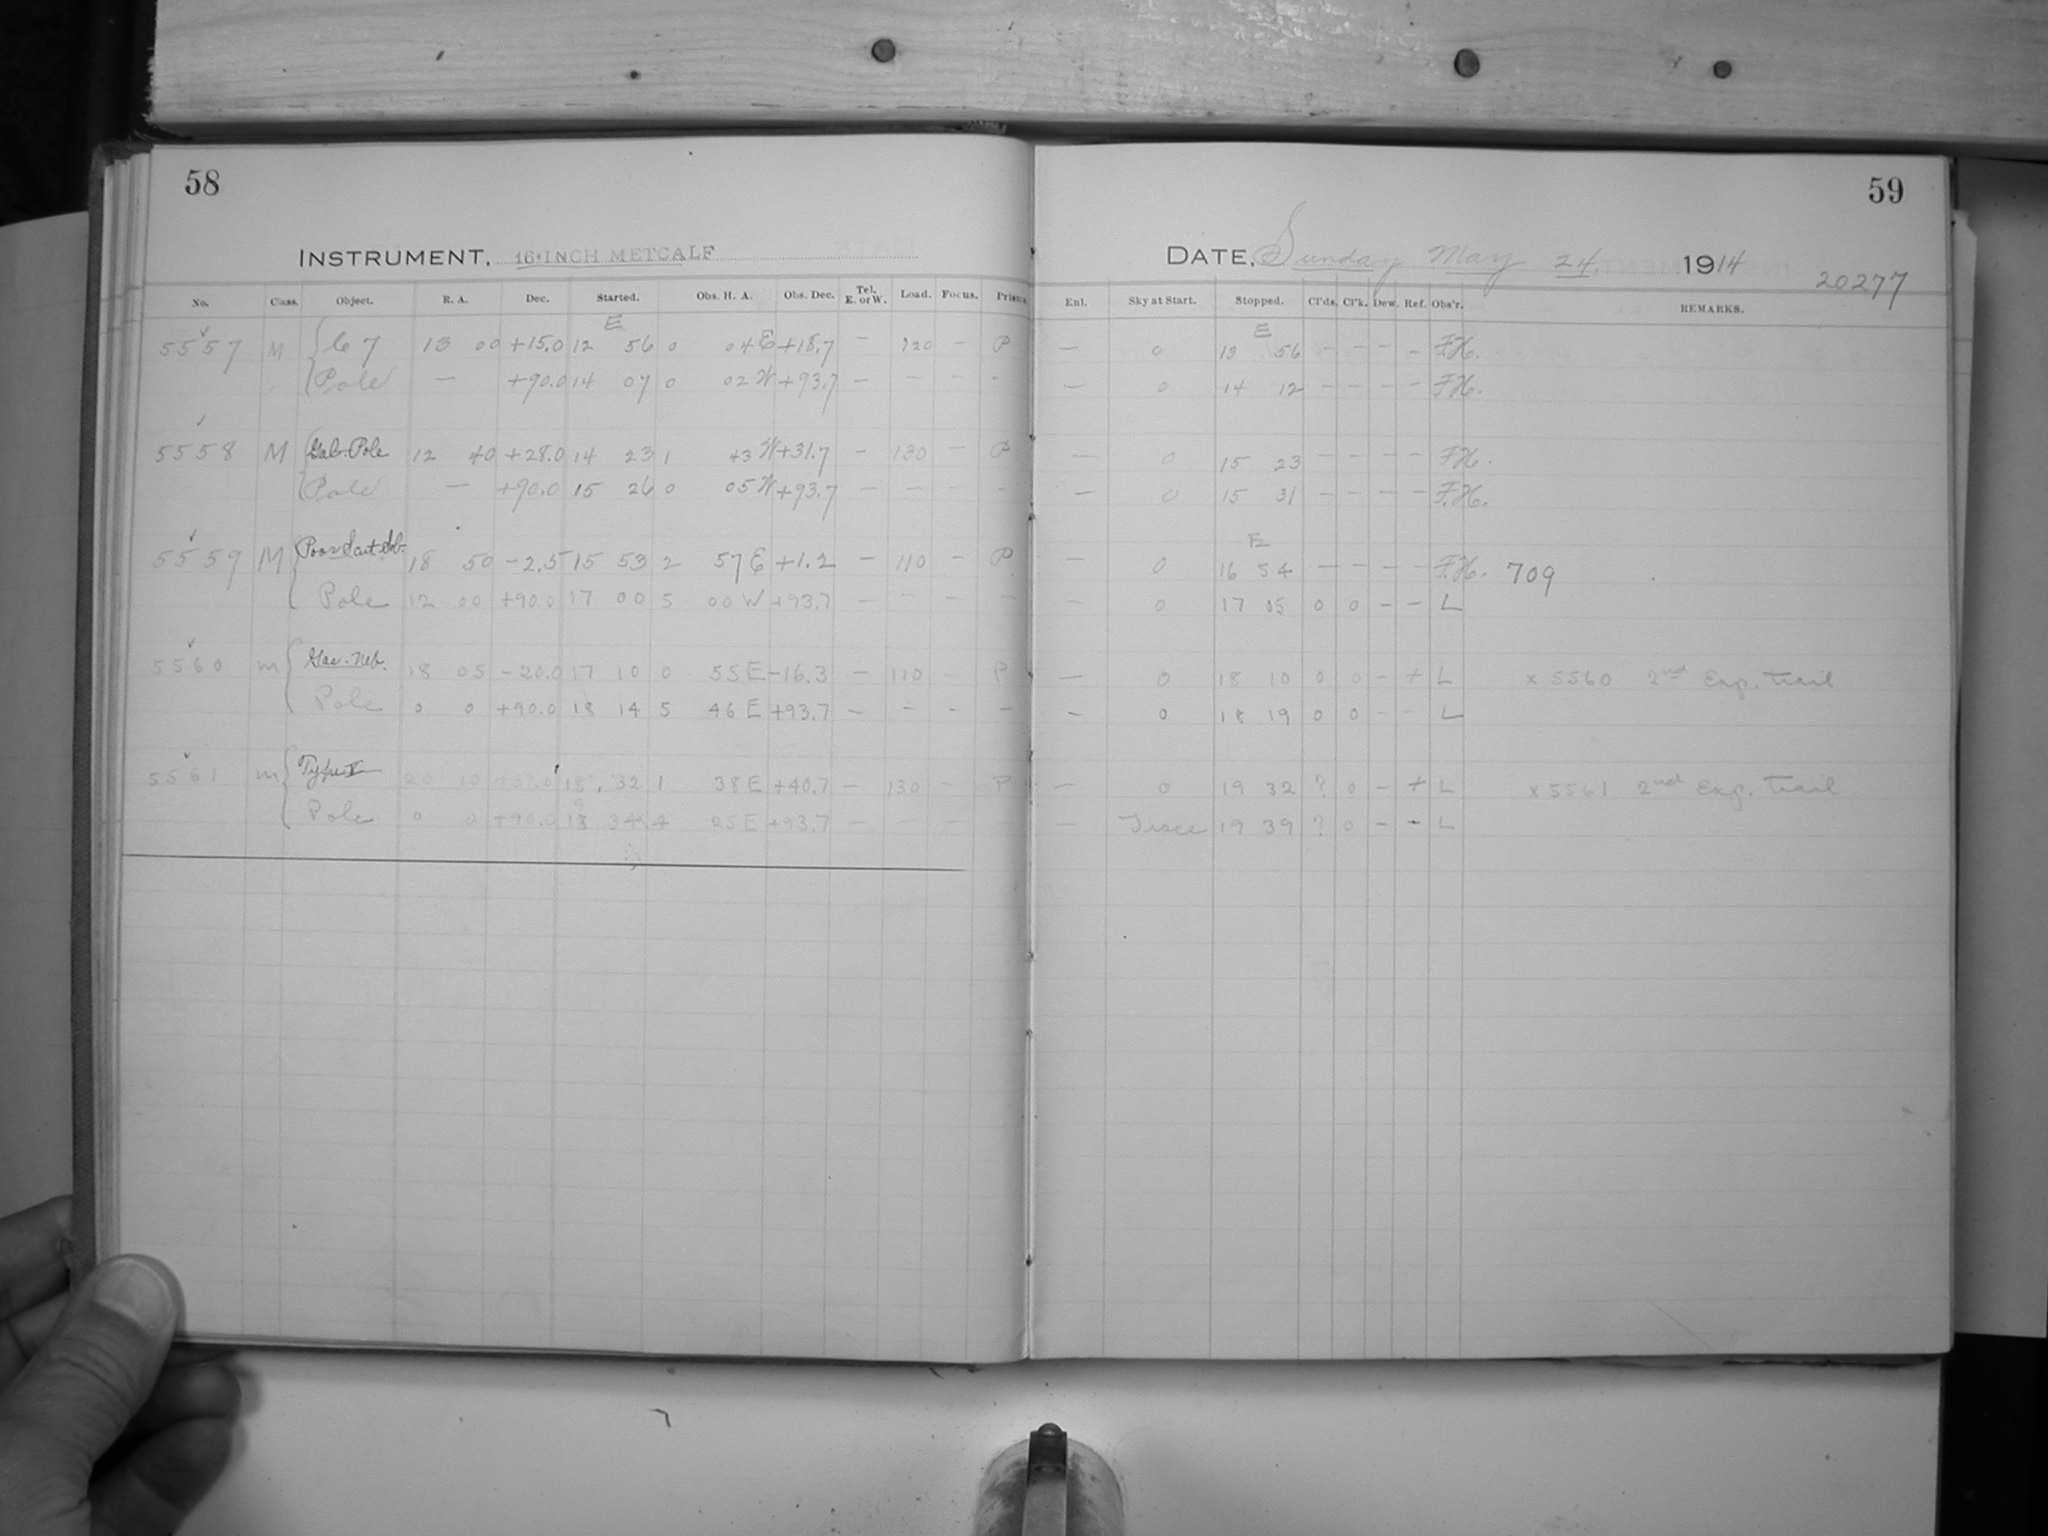 58
INSTRUMENT, 16-INCH METCALF
No. Class. Object. R. A. Dec. Started. Obs. H. A. Obs. Dec. Tel. E. or W. Load. Focus. Prism
E
5557 M 13 00 +15.0 12 56 0 04 E +18.7 — 120 — P
Pole — +90.0 14 07 0 02 W +93.7 — — — -
5558 M Gal. Pole 12 40 +28.0 14 23 1 43 W +31.7 - 130 — P
Pole — +90.0 15 26 0 05 W +93.7 — — — -
5559 M 18 50 -2.5 15 53 2 57 E +1.2 — 110 — P
Pole 12 00 +90.0 17 00 5 00 W +93.7 — — — —
5560 m Gas. Neb. 18 05 -20.0 17 10 0 55 E -16.3 — 110 — P
Pole 0 0 +90.0 18 14 5 46 E +93.7 — — - —
5561 m Type 20 10 18 32 1 38 E +40.7 — 130 — P
Pole 0 0 +90.0 34 4 25 E +93.7 — — — —
59
DATE, Sunday May 24. 1914
20277
Enl. Sky at Start. Stopped. Cl'ds. Cl'k. Dew. Ref. Obs'r. REMARKS.
E
— 0 13 56 — — — — F.H.
— 0 14 12 — — — — F.H.
— 0 15 23 — — — — F.H.
— 0 15 31 — — — — F.H.
E
— 0 16 54 — — — — F.H. 709
— 0 17 05 0 0 — — L
— 0 18 10 0 0 - + L x 5560 2nd Exp. trail
— 0 18 19 0 0 - - L
— 0 19 32 ? 0 - + L x 5561 2nd Exp. trail
— Trace 19 39 ? 0 - - L